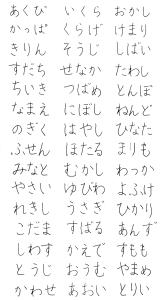 あくび いくら おかし
かっぱ くらげ けまり
きりん そうじ しばい
すだち せなか たわし
ちいき つばめ とんぼ
なまえ にぼし ねんど
のぎく はやし ひなた
ふせん ほたる まりも
みなと むかし わっか
やさい ゆびわ よふけ
れきし うさぎ ひかり
こだま すばる あんず
しわす かえで すもも
とうじ おうむ やまめ
かわせ あおい とりい